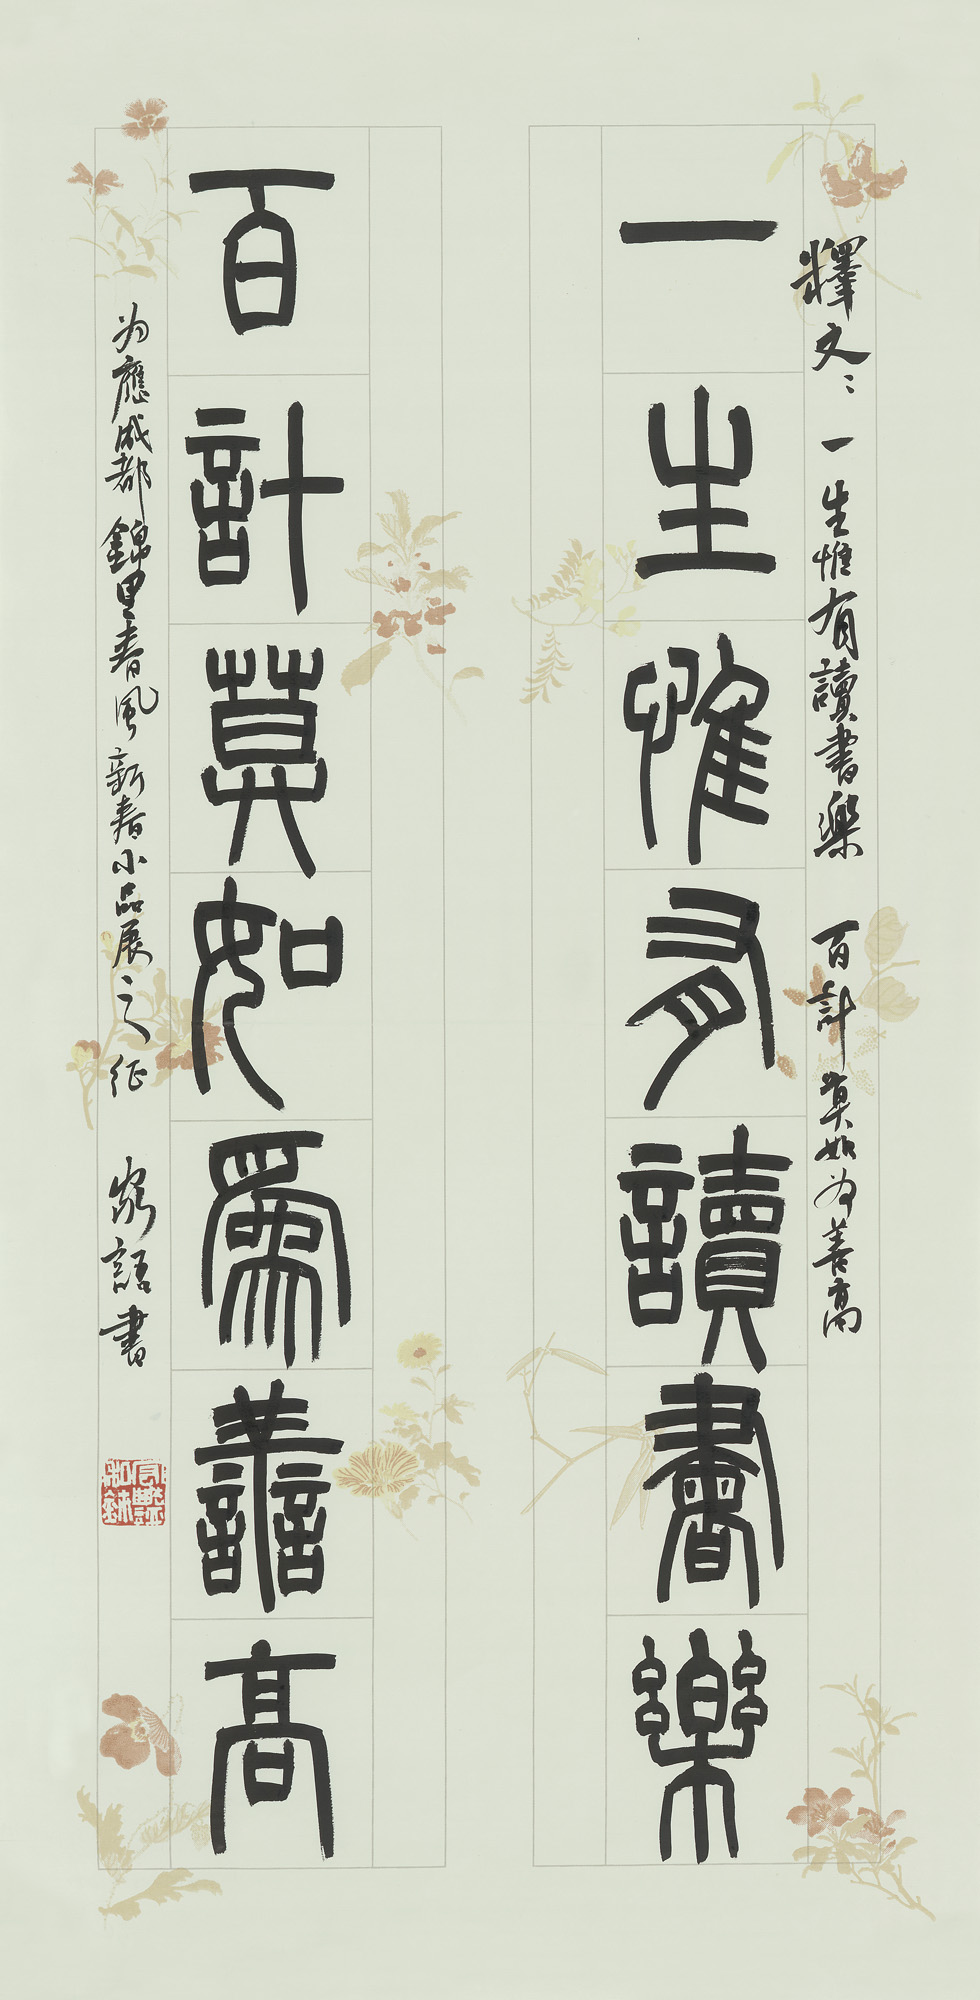 釋文：一生惟有讀書樂 百計莫如為善高
一生惟有讀書樂
百計莫如爲善高
为應成都錦里春风新春小品展之征 家語書